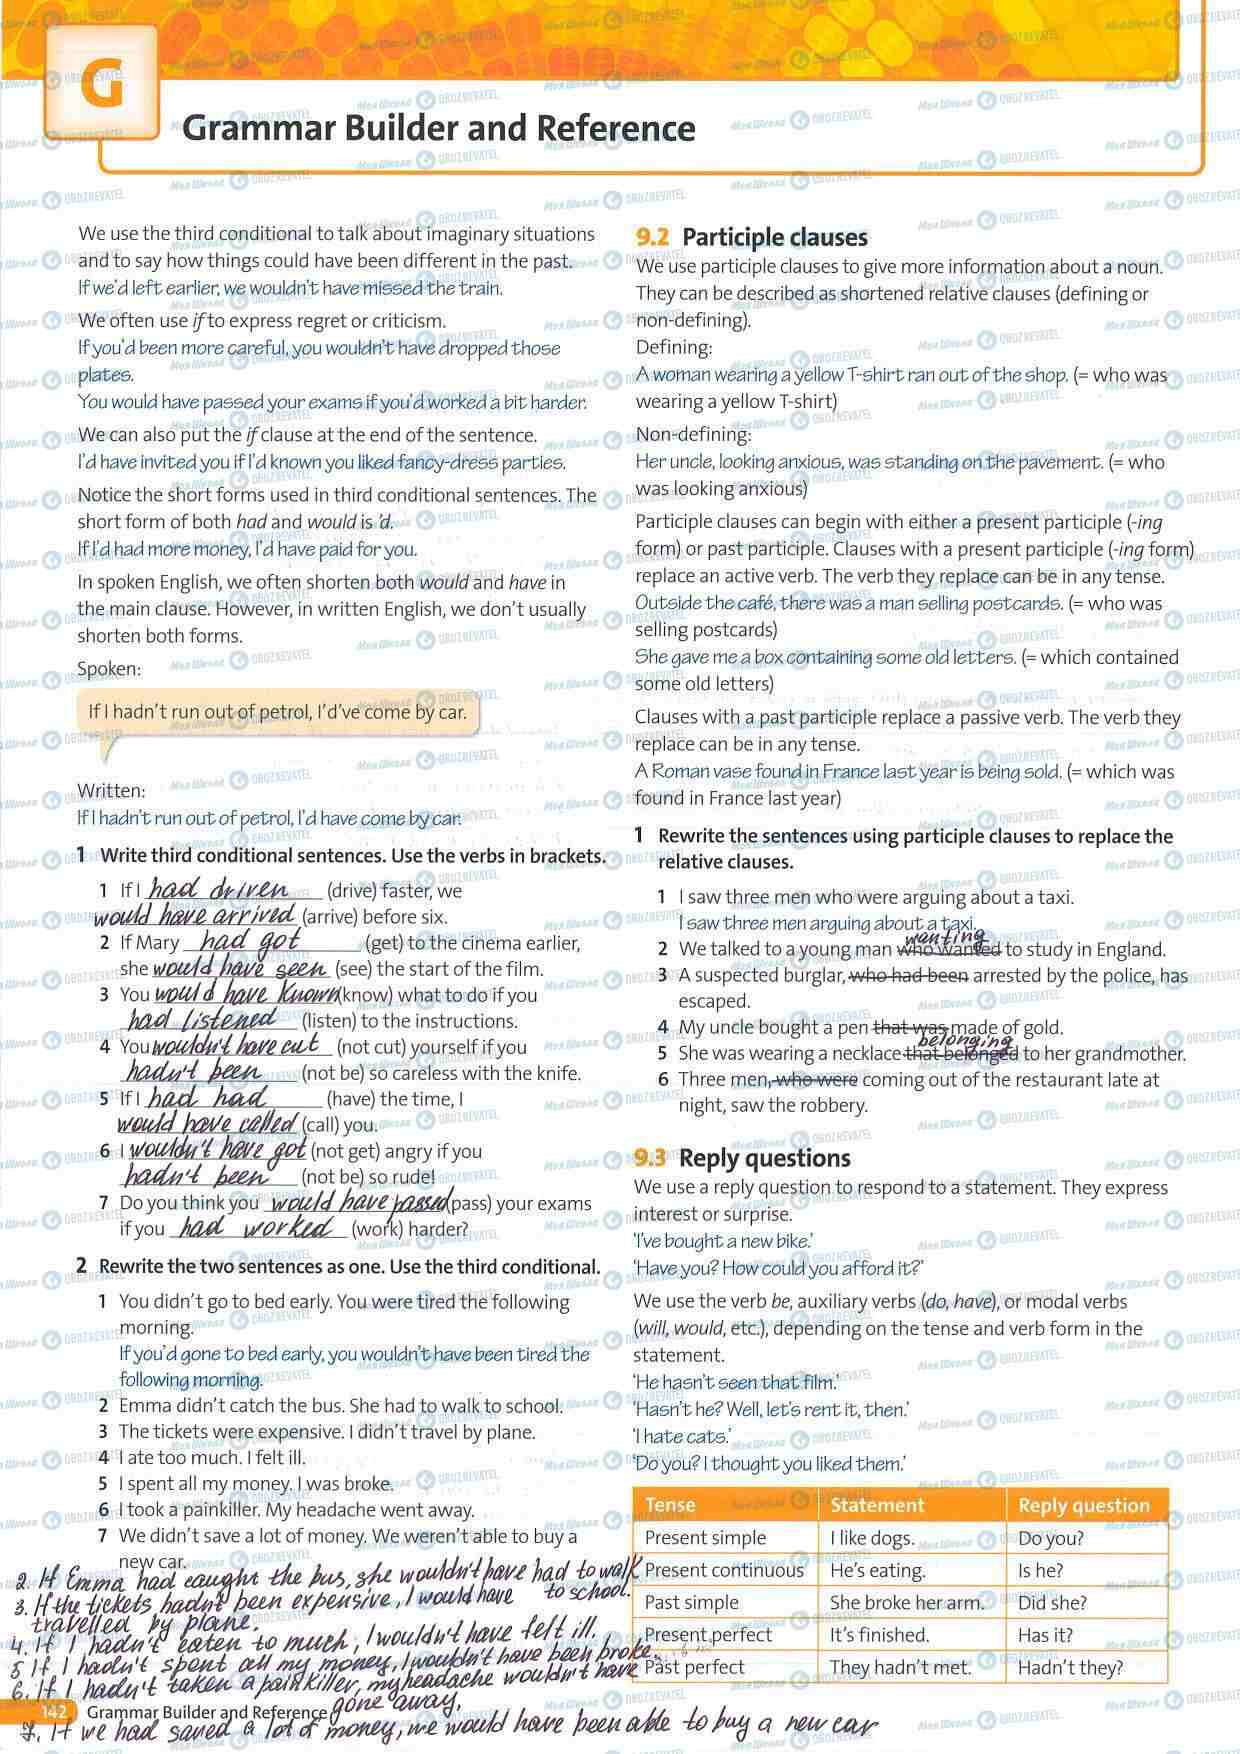 G
Grammar Builder and Reference
We use the third conditional to talk about imaginary situations
and to say how things could have been different in the past.
If we'd left earlier, we wouldn't have missed the train.
We often use if to express regret or criticism.
If you'd been more careful, you wouldn't have dropped those
plates.
You would have passed your exams if you'd worked a bit harder.
We can also put the if clause at the end of the sentence.
I'd have invited you if I'd known you liked fancy-dress parties.
Notice the short forms used in third conditional sentences. The
short form of both had and would is 'd.
If I'd had more money, I'd have paid for you.
In spoken English, we often shorten both would and have in
the main clause. However, in written English, we don't usually
shorten both forms.
Spoken:
If I hadn't run out of petrol, I'd've come by car.
Written:
If I hadn't run out of petrol, I'd have come by car.
1 Write third conditional sentences. Use the verbs in brackets.
1 If I had driven (drive) faster, we
would have arrived (arrive) before six.
2 If Mary had got (get) to the cinema earlier,
she would have seen (see) the start of the film.
3 You would have known (know) what to do if you
had listened (listen) to the instructions.
4 You wouldn't have cut (not cut) yourself if you
hadn't been (not be) so careless with the knife.
5 If I had had (have) the time, I
would have called (call) you.
6 I wouldn't have got (not get) angry if you
hadn't been (not be) so rude!
7 Do you think you would have passed (pass) your exams
if you had worked (work) harder?
2 Rewrite the two sentences as one. Use the third conditional.
1 You didn't go to bed early. You were tired the following
morning.
If you'd gone to bed early, you wouldn't have been tired the
following morning.
2 Emma didn't catch the bus. She had to walk to school.
3 The tickets were expensive. I didn't travel by plane.
4 I ate too much. I felt ill.
5 I spent all my money. I was broke.
6 I took a painkiller. My headache went away.
7 We didn't save a lot of money. We weren't able to buy a
new car.
2. If Emma had caught the bus, she wouldn't have had to walk
to school.
3. If the tickets hadn't been expensive, I would have
travelled by plane.
4. If I hadn't eaten to much, I wouldn't have felt ill.
5 If I hadn't spent all my money, I wouldn't have been broke.
6. If I hadn't taken a painkiller, my headache wouldn't have
gone away.
7. If we had saved a lot of money, we would have been able to buy a new car
142 Grammar Builder and Reference
9.2 Participle clauses
We use participle clauses to give more information about a noun.
They can be described as shortened relative clauses (defining or
non-defining).
Defining:
A woman wearing a yellow T-shirt ran out of the shop. (= who was
wearing a yellow T-shirt)
Non-defining:
Her uncle, looking anxious, was standing on the pavement. (= who
was looking anxious)
Participle clauses can begin with either a present participle (-ing
form) or past participle. Clauses with a present participle (-ing form)
replace an active verb. The verb they replace can be in any tense.
Outside the café, there was a man selling postcards. (= who was
selling postcards)
She gave me a box containing some old letters. (= which contained
some old letters)
Clauses with a past participle replace a passive verb. The verb they
replace can be in any tense.
A Roman vase found in France last year is being sold. (= which was
found in France last year)
1 Rewrite the sentences using participle clauses to replace the
relative clauses.
1 I saw three men who were arguing about a taxi.
I saw three men arguing about a taxi.
wanting
2 We talked to a young man who wanted to study in England.
3 A suspected burglar, who had been arrested by the police, has
escaped.
4 My uncle bought a pen that was made of gold.
belonging
5 She was wearing a necklace that belonged to her grandmother.
6 Three men, who were coming out of the restaurant late at
night, saw the robbery.
9.3 Reply questions
We use a reply question to respond to a statement. They express
interest or surprise.
'I've bought a new bike.'
'Have you? How could you afford it?'
We use the verb be, auxiliary verbs (do, have), or modal verbs
(will, would, etc.), depending on the tense and verb form in the
statement.
'He hasn't seen that film.'
'Hasn't he? Well, let's rent it, then.'
'I hate cats.'
'Do you? I thought you liked them.'
Tense Statement Reply question
Present simple I like dogs. Do you?
Present continuous He's eating. Is he?
Past simple She broke her arm. Did she?
Present perfect It's finished. Has it?
Past perfect They hadn't met. Hadn't they?